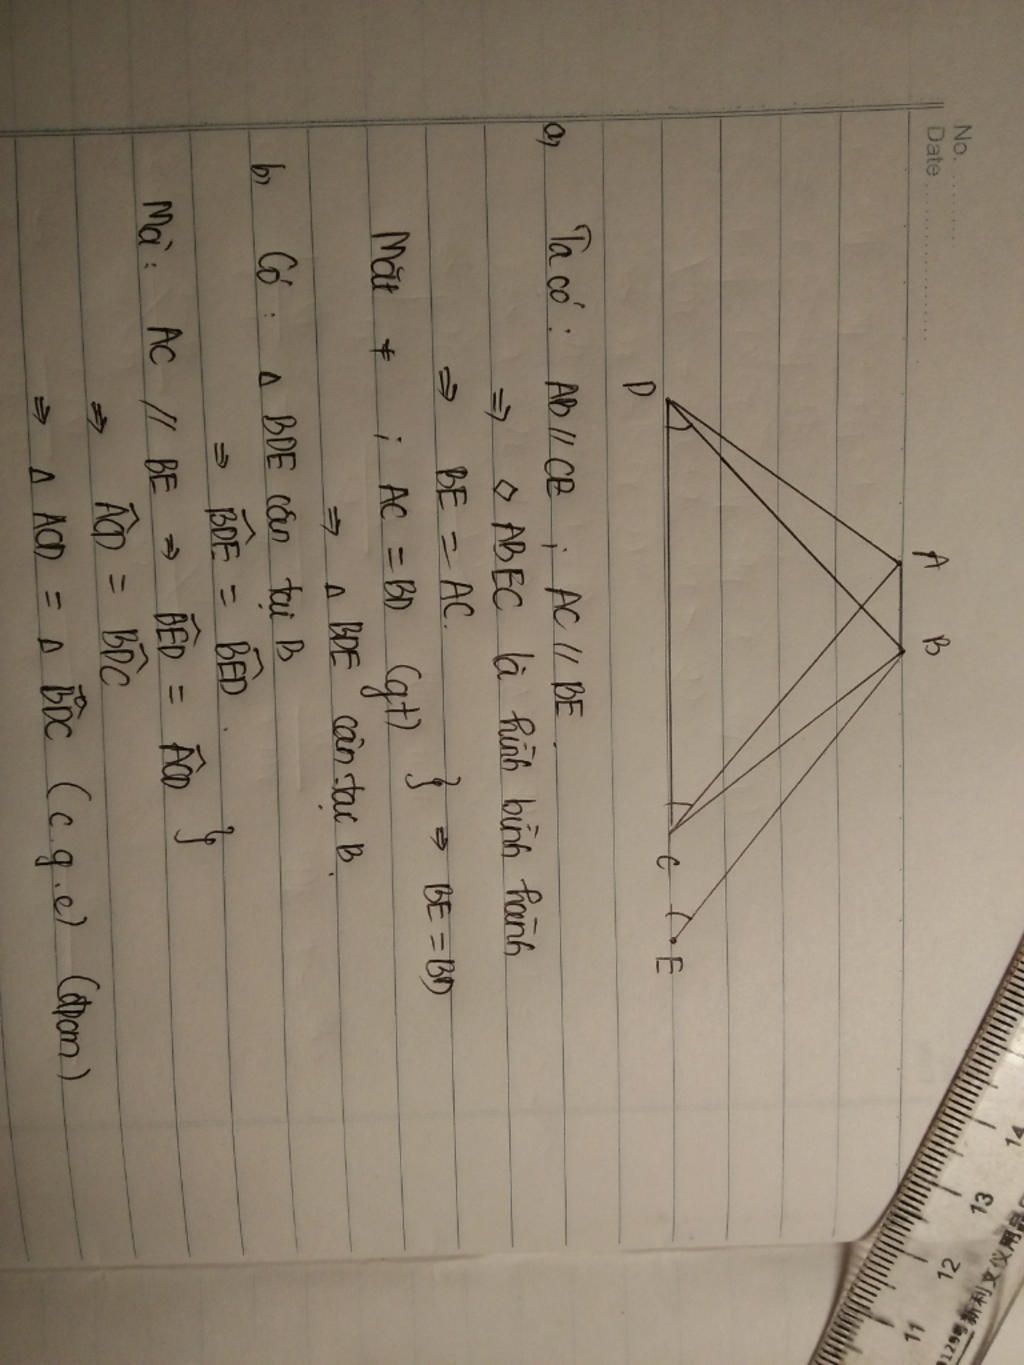 No. ............
Date ........................
A B
D C E
a, Ta có : AB // CE ; AC // BE.
⇒ ◇ ABEC là hình bình hành
⇒ BE = AC.
Mặt ≠ ; AC = BD (gt) } ⇒ BE = BD
⇒ Δ BDE cân tại B.
b, Có : Δ BDE cân tại B
⇒ B̂DE = B̂ED.
Mà : AC // BE ⇒ B̂ED = ÂCD }
⇒ ÂCD = B̂DC
⇒ Δ ACD = Δ BDC (c.g.c) (đpcm)
14
13
12
11
129号新利文仪用品